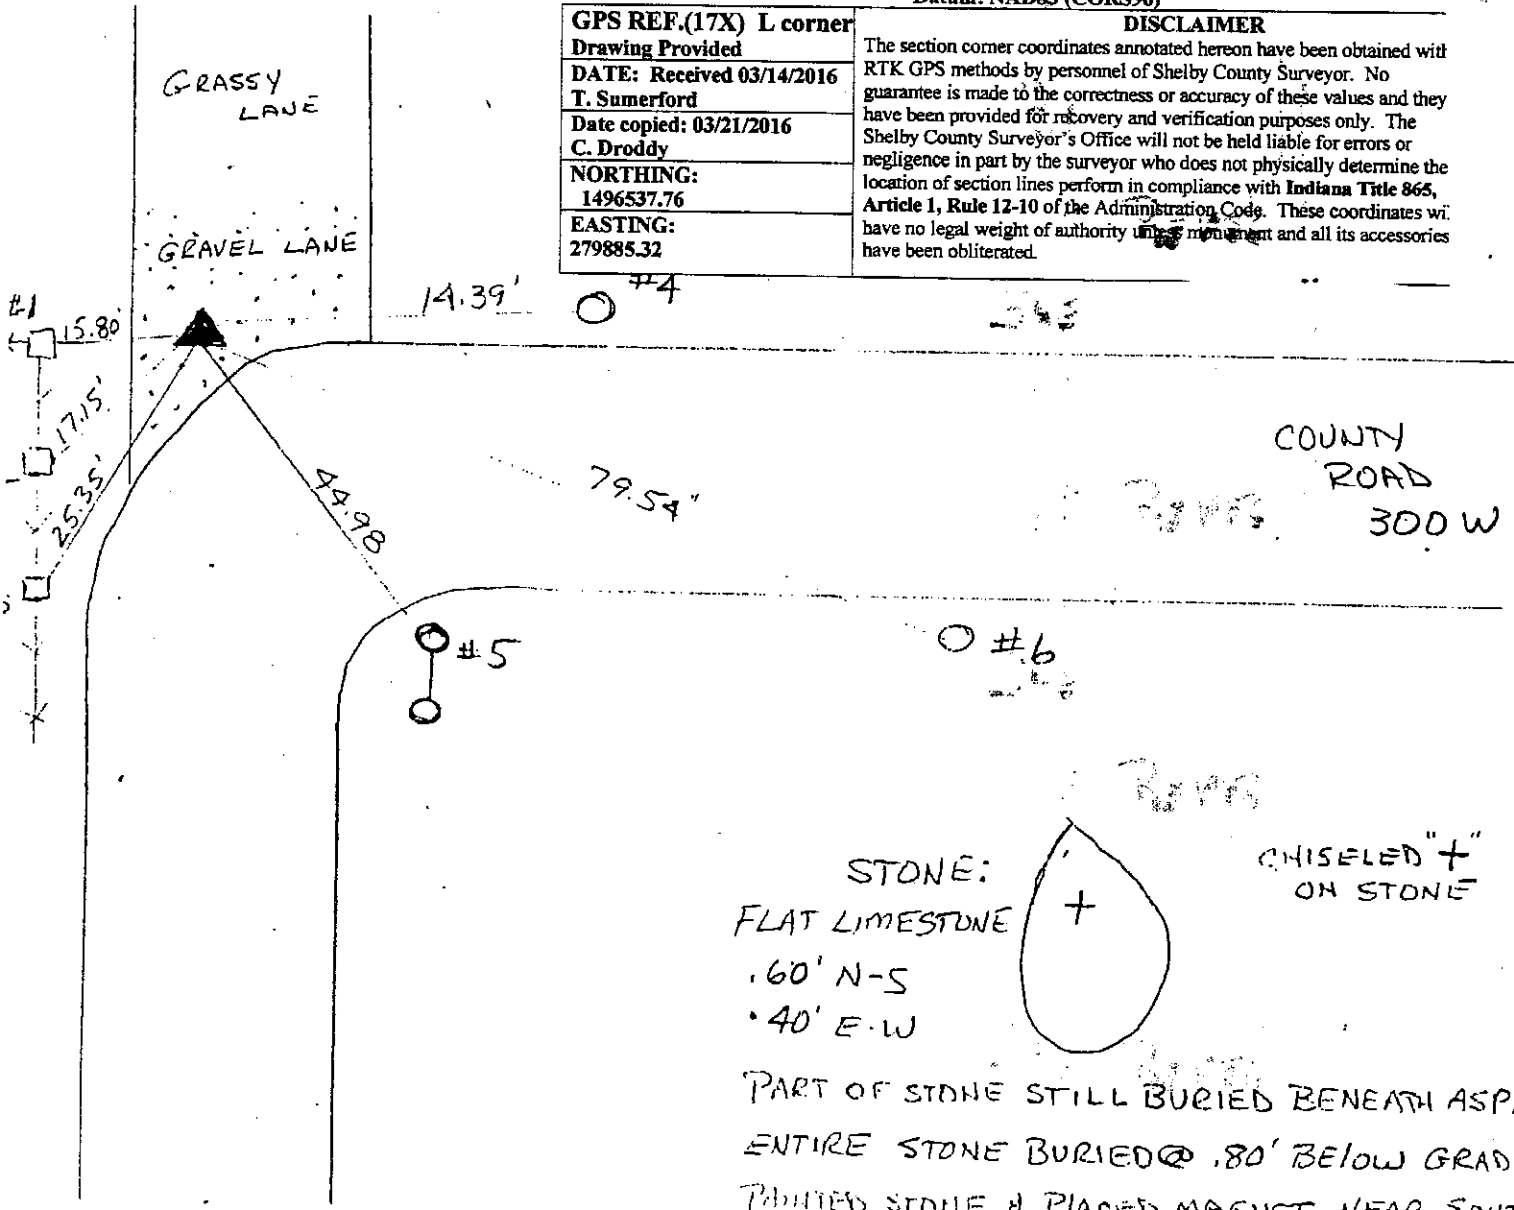 Datum: NAD83 (CORS96)
GPS REF.(17X) L corner
Drawing Provided
DATE: Received 03/14/2016
T. Sumerford
Date copied: 03/21/2016
C. Droddy
NORTHING:
1496537.76
EASTING:
279885.32
DISCLAIMER
The section corner coordinates annotated hereon have been obtained with
RTK GPS methods by personnel of Shelby County Surveyor. No
guarantee is made to the correctness or accuracy of these values and they
have been provided for recovery and verification purposes only. The
Shelby County Surveyor's Office will not be held liable for errors or
negligence in part by the surveyor who does not physically determine the
location of section lines perform in compliance with Indiana Title 865,
Article 1, Rule 12-10 of the Administration Code. These coordinates wi
have no legal weight of authority unless monument and all its accessories
have been obliterated.
GRASSY
LANE
GRAVEL LANE
#1
15.80'
14.39'
#4
17.15'
25.35'
44.98
79.54'
COUNTY
ROAD
300 W
#5
#6
STONE:
FLAT LIMESTONE
.60' N-S
.40' E-W
CHISELED "+"
ON STONE
+
PART OF STONE STILL BURIED BENEATH ASP
ENTIRE STONE BURIED @ .80' BELOW GRAD
PAINTED STONE & PLACED MAGNET NEAR SOUT